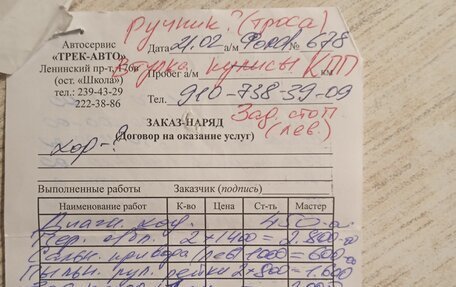 Ручник? (троса)
Автосервис
«ТРЕК-АВТО»
Ленинский пр-т, 176в
(ост. «Школа»)
тел.: 239-43-29
222-38-86
Дата 21.02 а/м Форд № 678
Втулка кулисы КПП
Пробег а/м км
Тел. 910-738-39-09
Зад. стоп
(лев.)
ЗАКАЗ-НАРЯД
(Договор на оказание услуг)
ход-?
Выполненные работы Заказчик (подпись)
Наименование работ К-во Цена Ст-ть Мастер
Диагн. ход. 450-00
2 + 1400 = 2.800-00
Сальн. привода лев 1000 = 600-00
Пыльн. рул. рейки 2 + 800 = 1.600